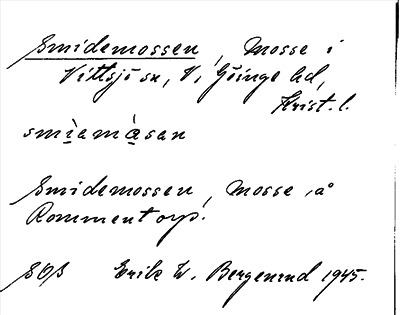 Smidemossen, Mosse i
Vittsjö sn, V. Göinge hd,
Krist. l.
smìamàsan
Smidemossen, Mosse, å
Rommentorp.
SOß Erik W. Bergenrud 1945.